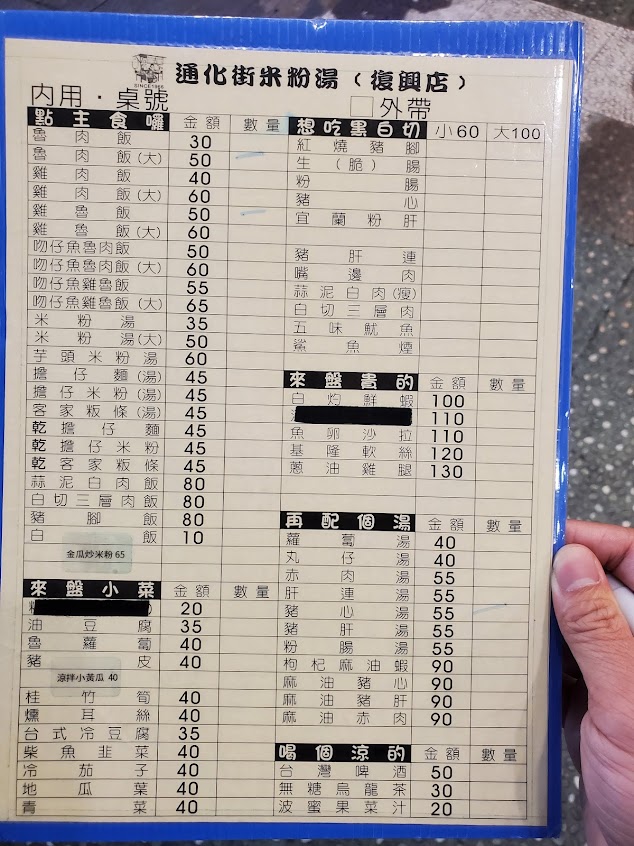 SINCE1966
通化街米粉湯(復興店)
內用.桌號
外帶
點主食囉 金額 數量
魯肉飯 30
魯肉飯(大) 50
雞肉飯 40
雞肉飯(大) 60
雞魯飯 50
雞魯飯(大) 60
吻仔魚魯肉飯 50
吻仔魚魯肉飯(大) 60
吻仔魚雞魯飯 55
吻仔魚雞魯飯(大) 65
米粉湯 35
米粉湯(大) 50
芋頭米粉湯 60
擔仔麵(湯) 45
擔仔米粉(湯) 45
客家粄條(湯) 45
乾擔仔麵 45
乾擔仔米粉 45
乾客家粄條 45
蒜泥白肉飯 80
白切三層肉飯 80
豬腳飯 80
白飯 10
金瓜炒米粉 65
來盤小菜 金額 數量
20
油豆腐 35
魯蘿蔔 40
豬皮 40
涼拌小黃瓜 40
桂竹筍 40
燻耳絲 40
台式冷豆腐 35
柴魚韭菜 40
冷茄子 40
地瓜葉 40
青菜 40
想吃黑白切 小60 大100
紅燒豬腳
生(脆)腸
粉腸
豬心
宜蘭粉肝
豬肝連
嘴邊肉
蒜泥白肉(瘦)
白切三層肉
五味魷魚
鯊魚煙
來盤貴的 金額 數量
白灼鮮蝦 100
110
魚卵沙拉 110
基隆軟絲 120
蔥油雞腿 130
再配個湯 金額 數量
蘿蔔湯 40
丸仔湯 40
赤肉湯 55
肝連湯 55
豬心湯 55
豬肝湯 55
粉腸湯 55
枸杞麻油蝦 90
麻油豬心 90
麻油豬肝 90
麻油赤肉 90
喝個涼的 金額 數量
台灣啤酒 50
無糖烏龍茶 30
波蜜果菜汁 20